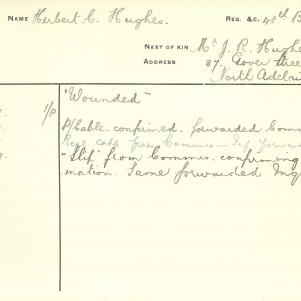 NAME Herbert C. Hughes. REG. &C. 48th B
NEXT OF KIN Mr J. R. Hughe
ADDRESS 37. Gover Stree
North Adelai
1/P "Wounded"
P/Cable confirmed forwarded Comm
Reg. Cable from Commrs — Inf. forwar
"Slip" from Commrs. confirming
mation. Same forwarded Inq